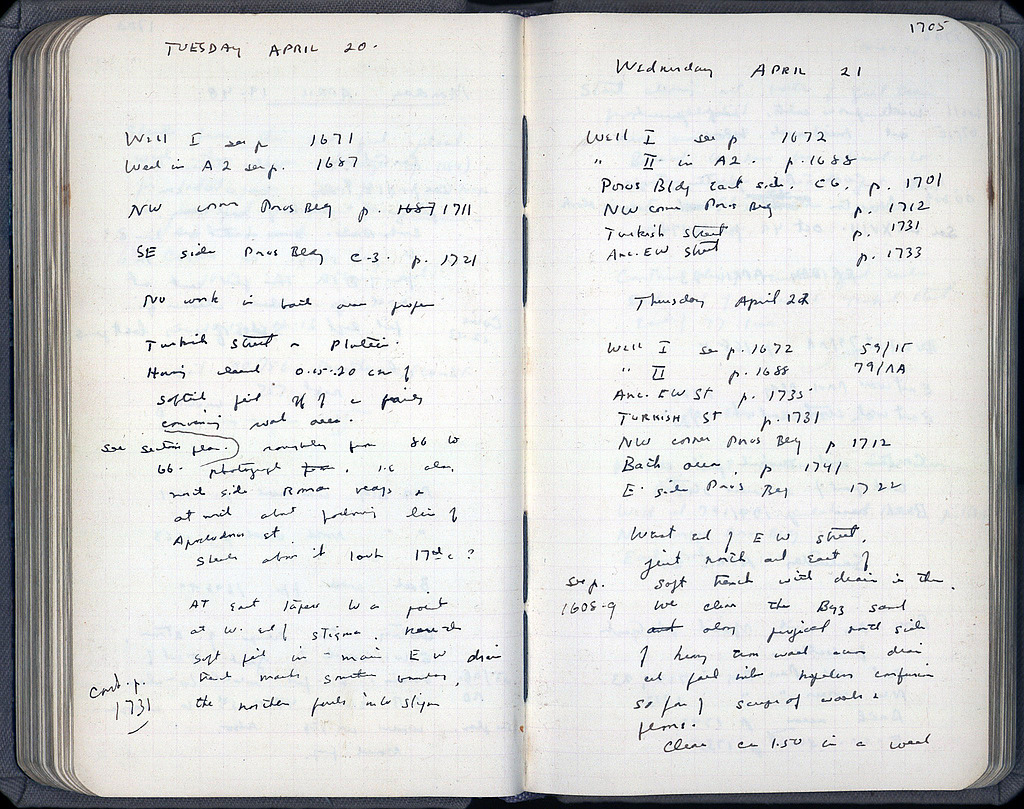 TUESDAY APRIL 20.
Well I see p 1671
Well in A 2 see p. 1687
NW corner Poros Bldg p. 1687 1711
SE side Poros Bldg C-3. p. 1721
No work in bath area proper
Turkish Street
Having cleared 0.15-.20 cm of
softish fill off of
covering road area.
see section plan.) roughly from 86 to
66. photograph
north side Roman
at about following line of
Apollodorus st.
Street above it looks 17th c?
AT East tapers to a point
at W. end of stigma.
soft fill in main E W drain
south
the northern into stigma
Cont. p.
1731
1705
Wednesday APRIL 21
Well I see p 1672
" II in A2. p. 1688
Poros Bldg east side. C6. p. 1701
NW corner Poros Bldg p. 1712
Turkish Street p. 1731
Anc. EW Street p. 1733
Thursday April 22
Well I see p. 1672 59/1Γ
" II p. 1688 79/ΛΑ
Anc. EW ST p. 1735
TURKISH ST p. 1731
NW corner Poros Bldg p 1712
Bath area, p 1741
E. side Poros Bldg 1722
West end of E W street,
just north and east of
see p. soft trench with drain in the
1608-9 we clear the Byz sand
and along north side
of heavy wall drain
and fall into hopeless confusion
so far of scraps of walls &
floors.
Clear ca 1.50 in a